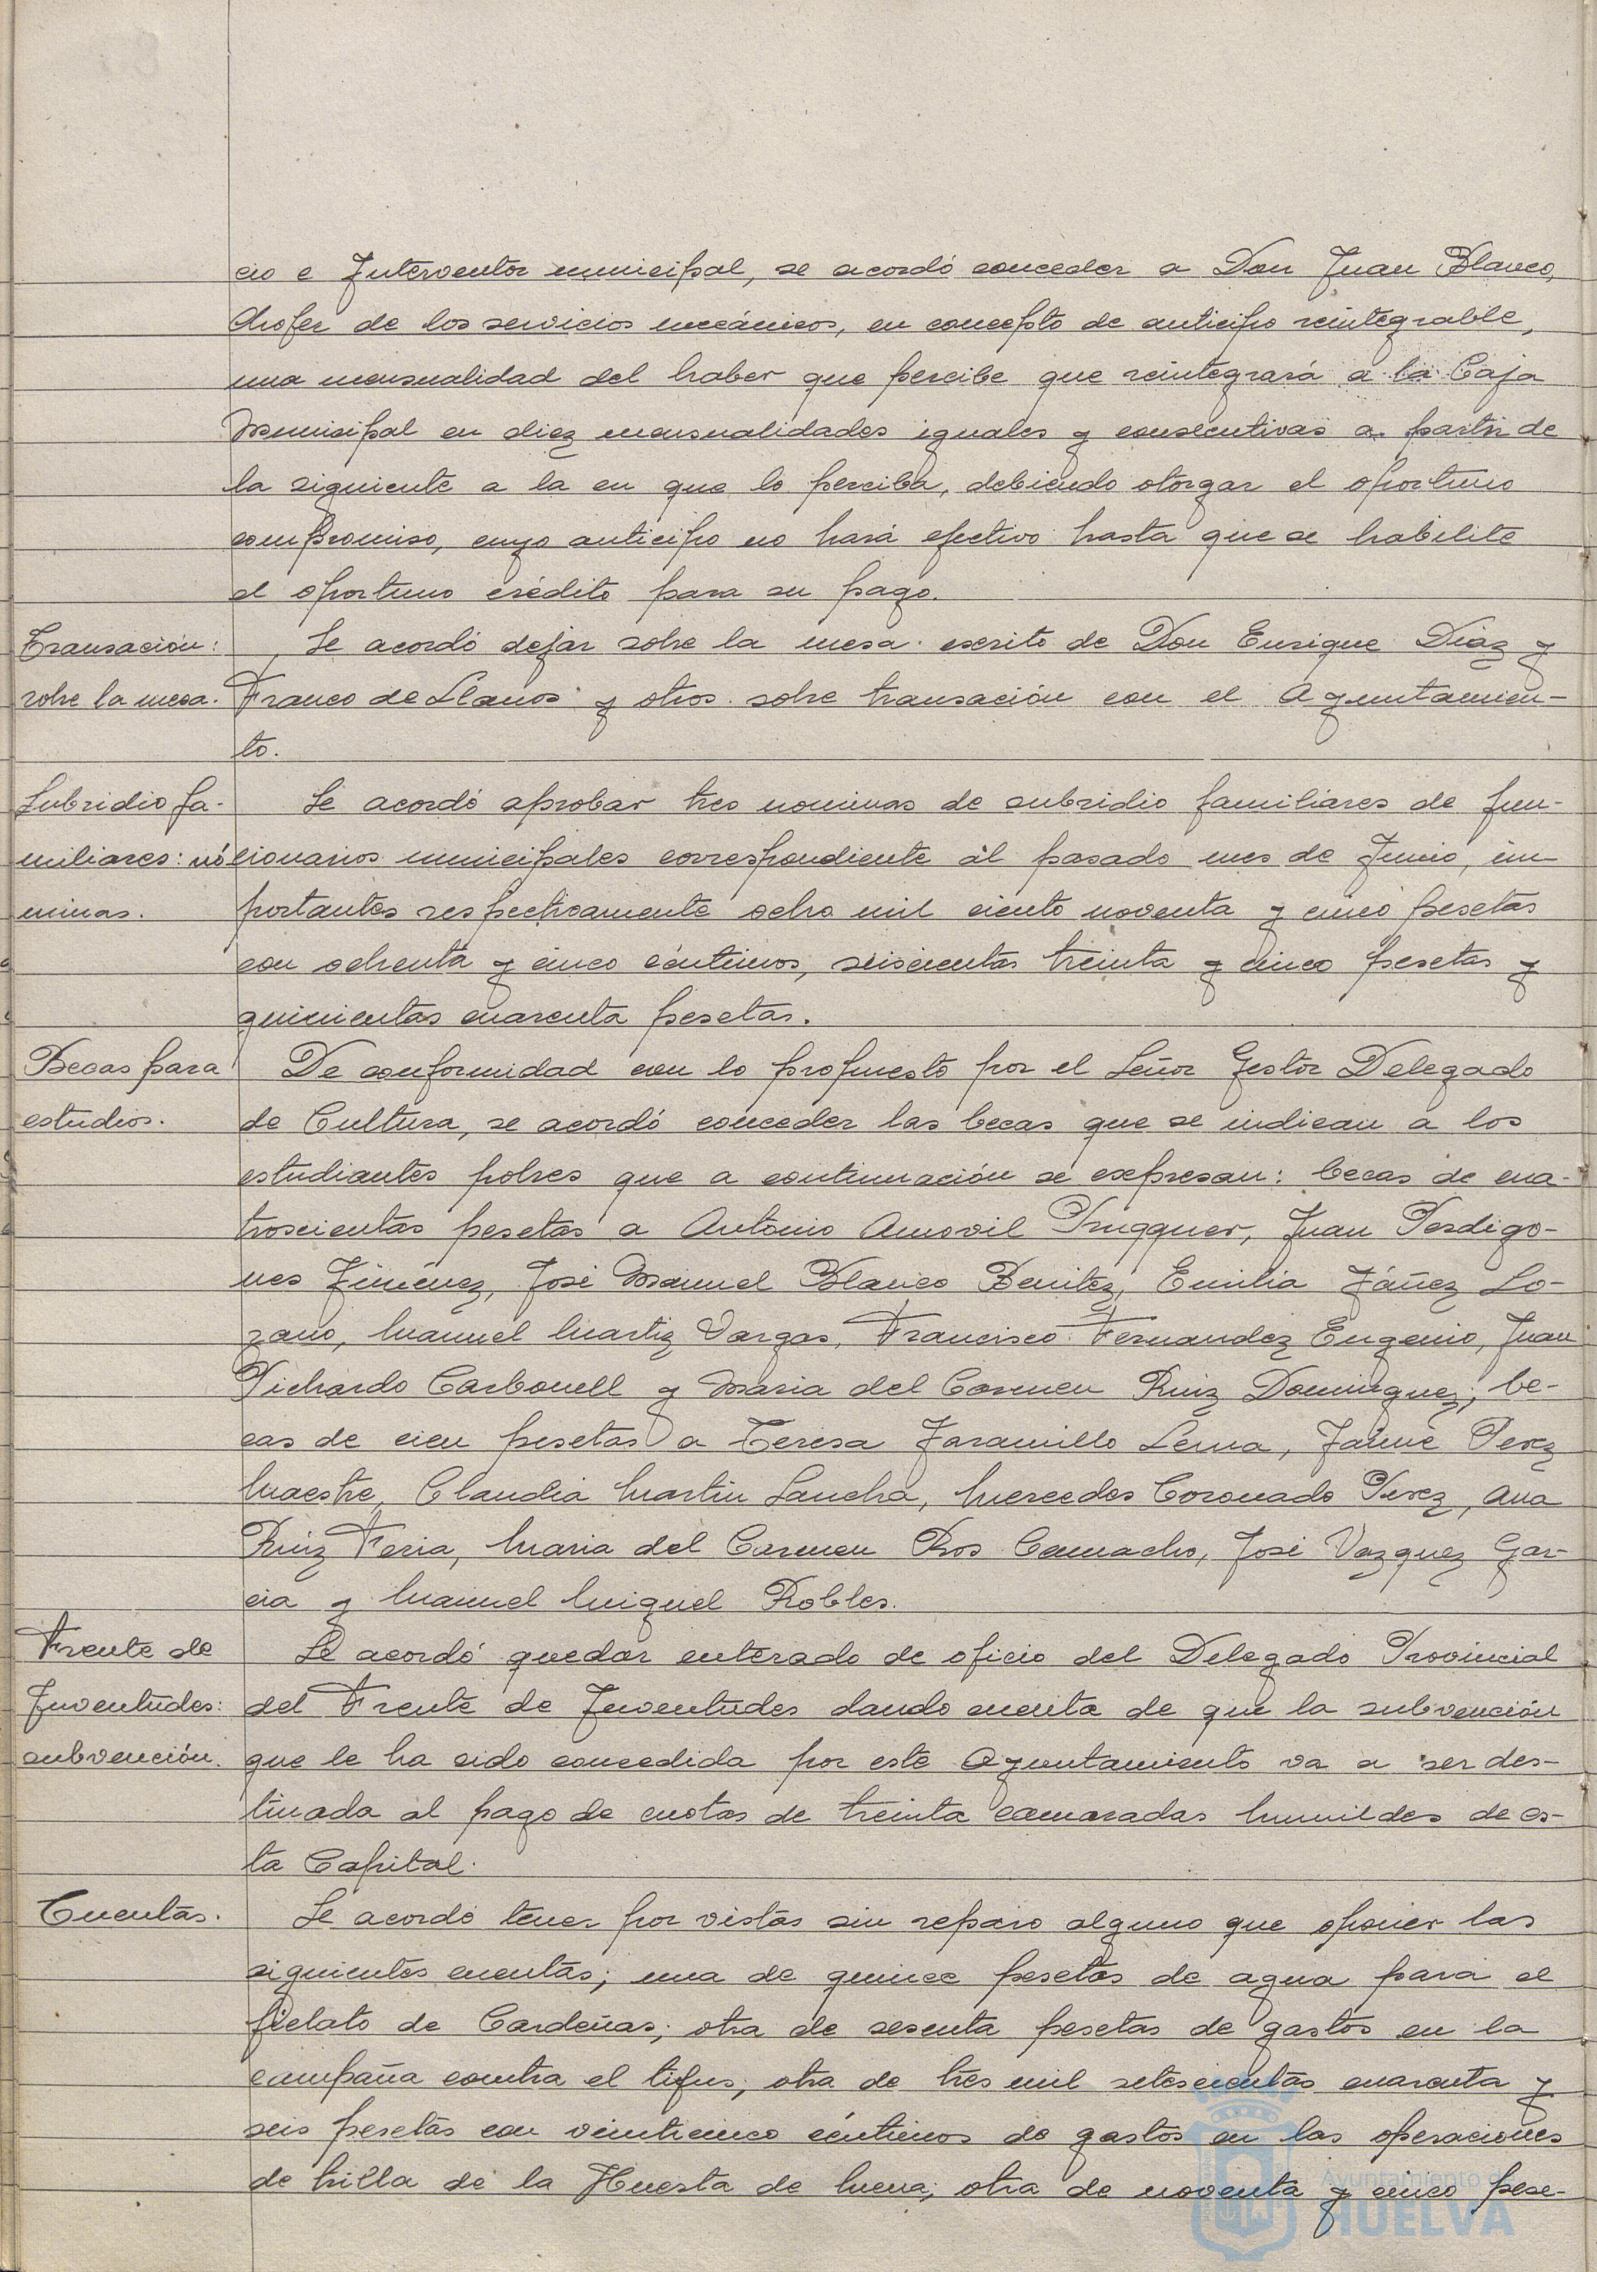 cio e Interventor municipal, se acordó conceder a Don Juan Blanco,
chofer de los servicios mecánicos, en concepto de anticipo reintegrable,
una mensualidad del haber que percibe que reintegrará a la Caja
Municipal en diez mensualidades iguales y consecutivas a partir de
la siguiente a la en que lo perciba, debiendo otorgar el oportuno
compromiso, cuyo anticipo no hará efectivo hasta que se habilite
el oportuno crédito para su pago.
Transación:
sobre la mesa.
Se acordó dejar sobre la mesa escrito de Don Enrique Diaz y
Franco de Llanos y otros sobre transación con el Ayuntamien-
to.
Subsidio fa-
miliares: nó
minas.
Se acordó aprobar tres nominas de subsidio familiares de fun-
cionarios municipales correspondiente al pasado mes de Junio, im-
portantes respectivamente ocho mil ciento noventa y cinco pesetas
con ochenta y cinco céntimos, seiscientas treinta y cinco pesetas y
quinientas cuarenta pesetas.
Becas para
estudios.
De conformidad con lo propuesto por el Señor Gestor Delegado
de Cultura, se acordó conceder las becas que se indican a los
estudiantes pobres que a continuación se expresan: becas de cua-
troscientas pesetas a Antonio Amovil Prugquer, Juan Perdigo-
nes Jiménez, José Manuel Blanco Benitez, Emilia Yáñez Lo-
zano, Manuel Martiz Vargas, Francisco Fernandez Eugenio, Juan
Pichardo Carbonell y Maria del Carmen Ruiz Dominguez; be-
cas de cien pesetas a Teresa Jaramillo Lema, Jaime Perez
Maestre, Claudia Martin Sancha, Mercedes Coronado Perez, Ana
Ruiz Feria, Maria del Carmen Ros Camacho, José Vazquez Gar-
cia y Manuel Miguel Robles.
Frente de
Juventudes:
subvención.
Se acordó quedar enterado de oficio del Delegado Provincial
del Frente de Juventudes dando cuenta de que la subvención
que le ha sido concedida por este Ayuntamiento va a ser des-
tinada al pago de cuotas de treinta camaradas humildes de es-
ta Capital.
Cuentas.
Se acordó tener por vistas sin reparo alguno que oponer las
siguientes cuentas; una de quince pesetas de agua para el
fielato de Cardeñas; otra de sesenta pesetas de gastos en la
campaña contra el tifus; otra de tres mil setescientas cuarenta y
seis pesetas con veinticinco céntimos de gastos en las operaciones
de trilla de la Huerta de Mena; otra de noventa y cinco pese-
Ayuntamiento de
HUELVA